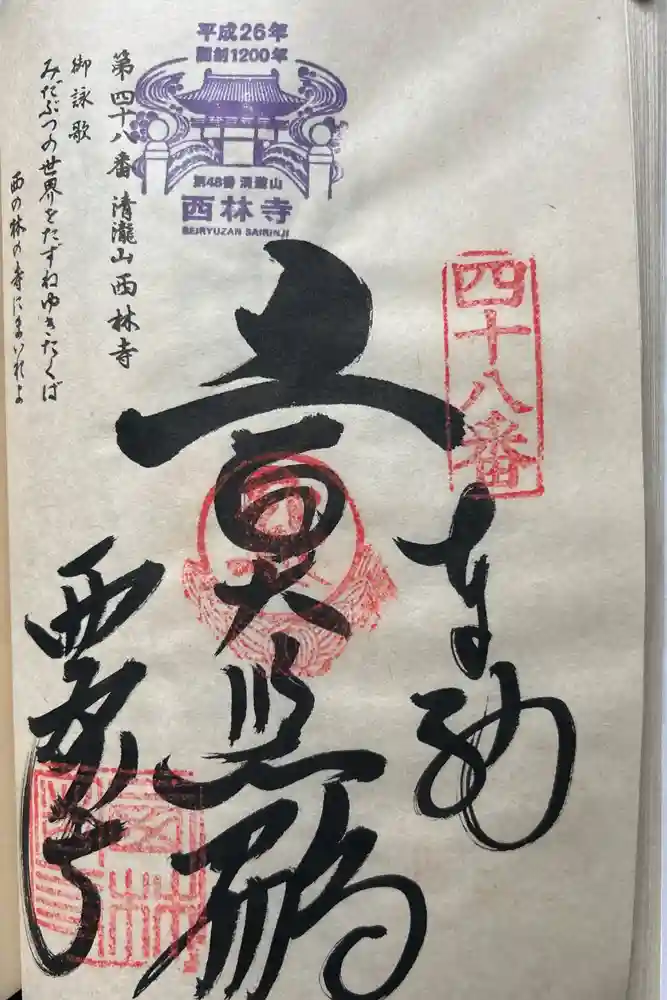 四十八番
奉納
西林寺
平成26年
開創1200年
第48番 清瀧山
西林寺
SEIRYUZAN SAIRINJI
第四十八番 清瀧山 西林寺
御詠歌
みだぶつの世界をたずねゆきたくば
西の林の寺にまいれよ